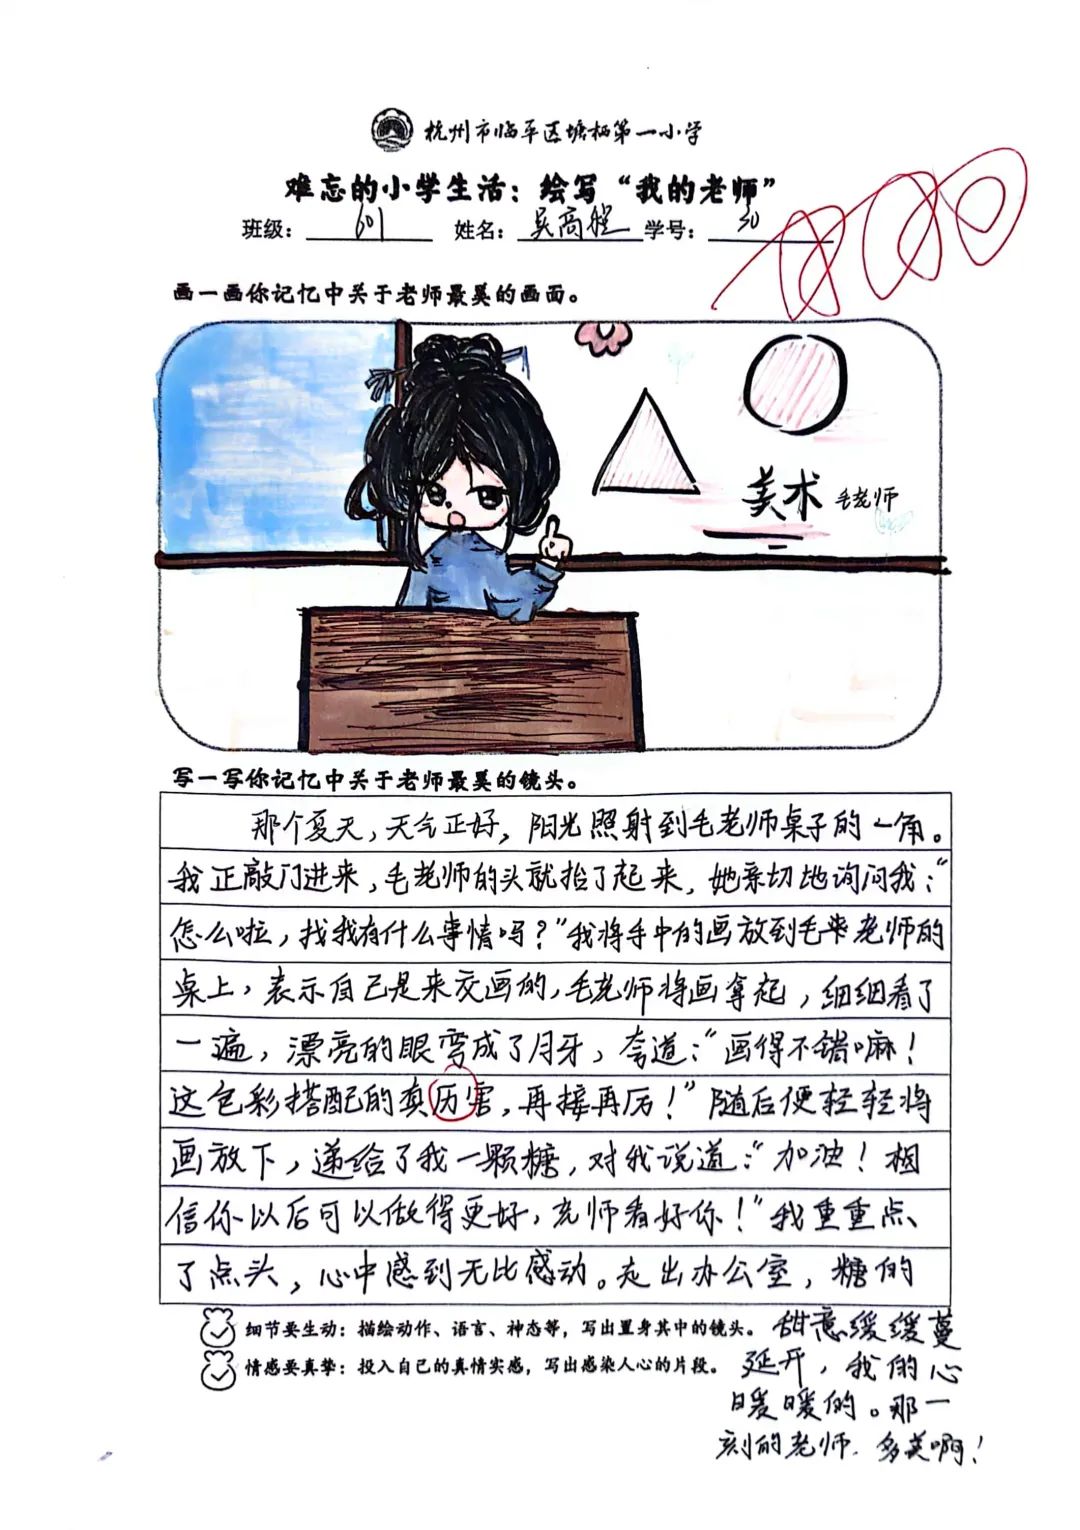 杭州市临平区塘栖第一小学
难忘的小学生活：绘写“我的老师”
班级：601 姓名：吴高程 学号：30
画一画你记忆中关于老师最美的画面。
美术 毛老师
写一写你记忆中关于老师最美的镜头。
那个夏天，天气正好，阳光照射到毛老师桌子的一角。
我正敲门进来，毛老师的头就抬了起来，她亲切地询问我：“
怎么啦，找我有什么事情吗？”我将手中的画放到毛老师的
桌上，表示自己是来交画的，毛老师将画拿起，细细看了
一遍，漂亮的眼弯成了月牙，夸道：“画得不错嘛！
这色彩搭配的真历害，再接再厉！”随后便轻轻将
画放下，递给了我一颗糖，对我说道：“加油！相
信你以后可以做得更好，老师看好你！”我重重点
了点头，心中感到无比感动。走出办公室，糖的
细节要生动：描绘动作、语言、神态等，写出置身其中的镜头。
情感要真挚：投入自己的真情实感，写出感染人心的片段。
甜意缓缓蔓
延开，我的心
暖暖的。那一
刻的老师，多美啊！